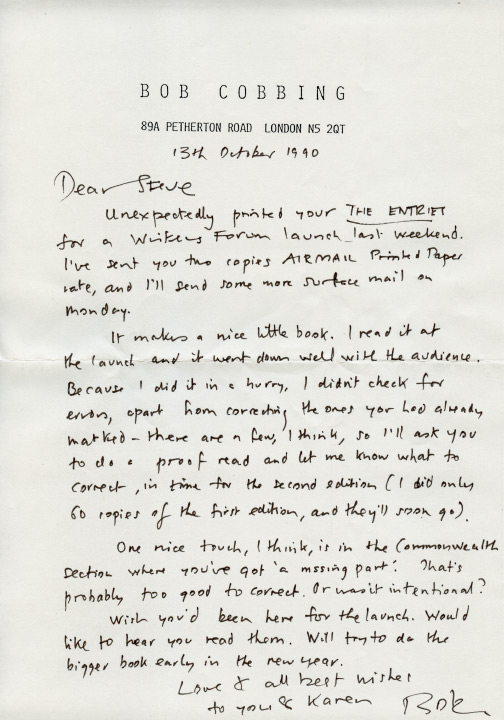 BOB COBBING
89A PETHERTON ROAD LONDON N5 2QT
13th October 1990
Dear Steve
Unexpectedly printed your THE ENTRIES
for a Writers Forum launch last weekend.
I've sent you two copies AIRMAIL Printed Paper
rate, and I'll send some more surface mail on
monday.
It makes a nice little book. I read it at
the launch and it went down well with the audience.
Because I did it in a hurry, I didn't check for
errors, apart from correcting the ones you had already
marked - there are a few, I think, so I'll ask you
to do a proof read and let me know what to
correct, in time for the second edition (I did only
60 copies of the first edition, and they'll soon go).
One nice touch, I think, is in the Commonwealth
section where you've got 'a mssing part'. That's
probably too good to correct. Or was it intentional?
Wish you'd been here for the launch. Would
like to hear you read them. Will try to do the
bigger book early in the new year.
Love & all best wishes
to you & Karen Bob